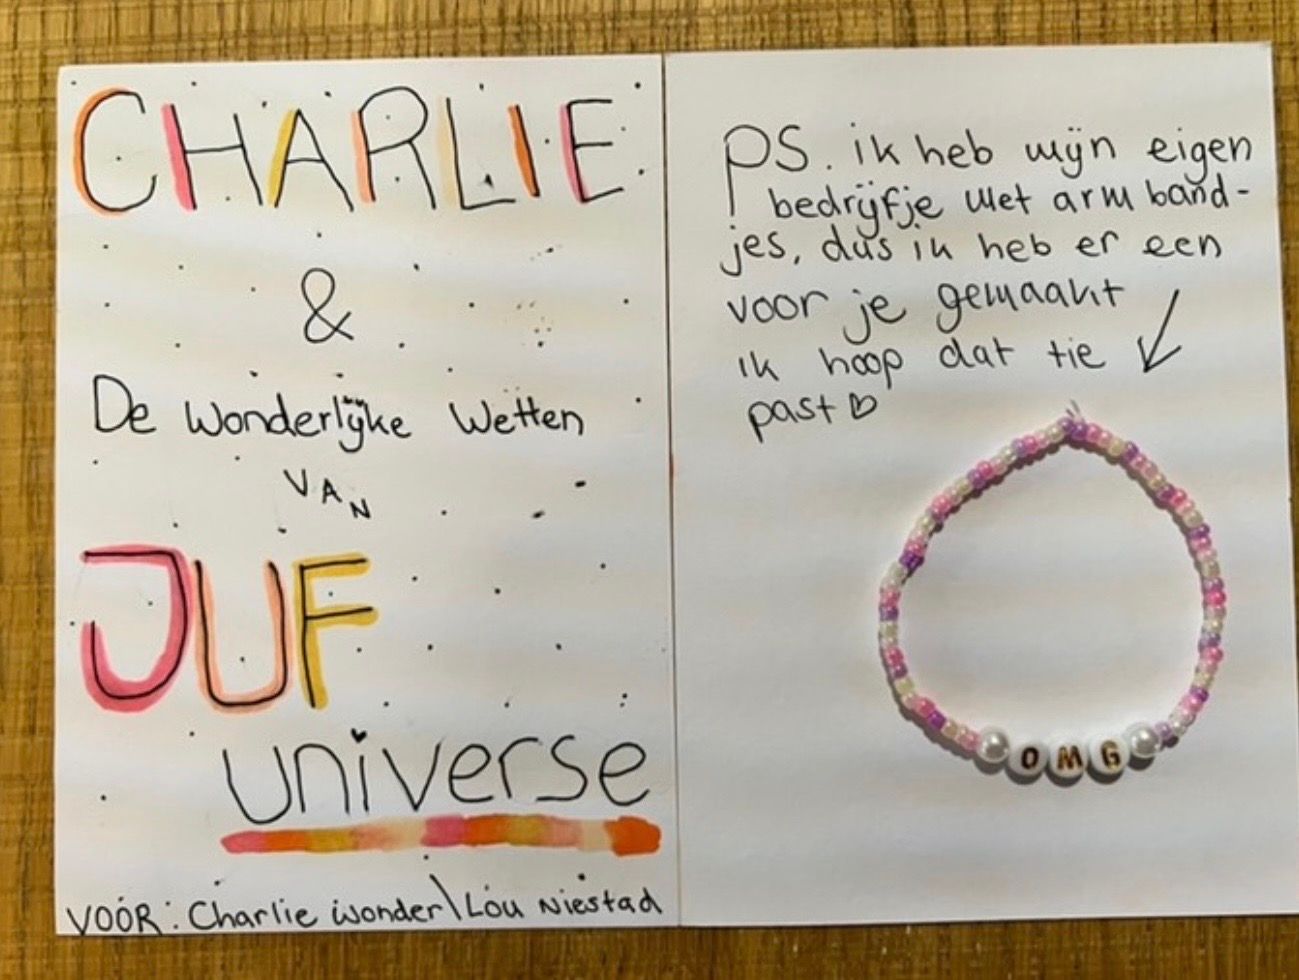 CHARLIE
&
De wonderlijke wetten
VAN
JUF
universe
VOOR: Charlie wonder\Lou Niestad
PS. ik heb mijn eigen
bedrijfje met arm band-
jes, dus ik heb er een
voor je gemaakt
ik hoop dat tie
past
OMG